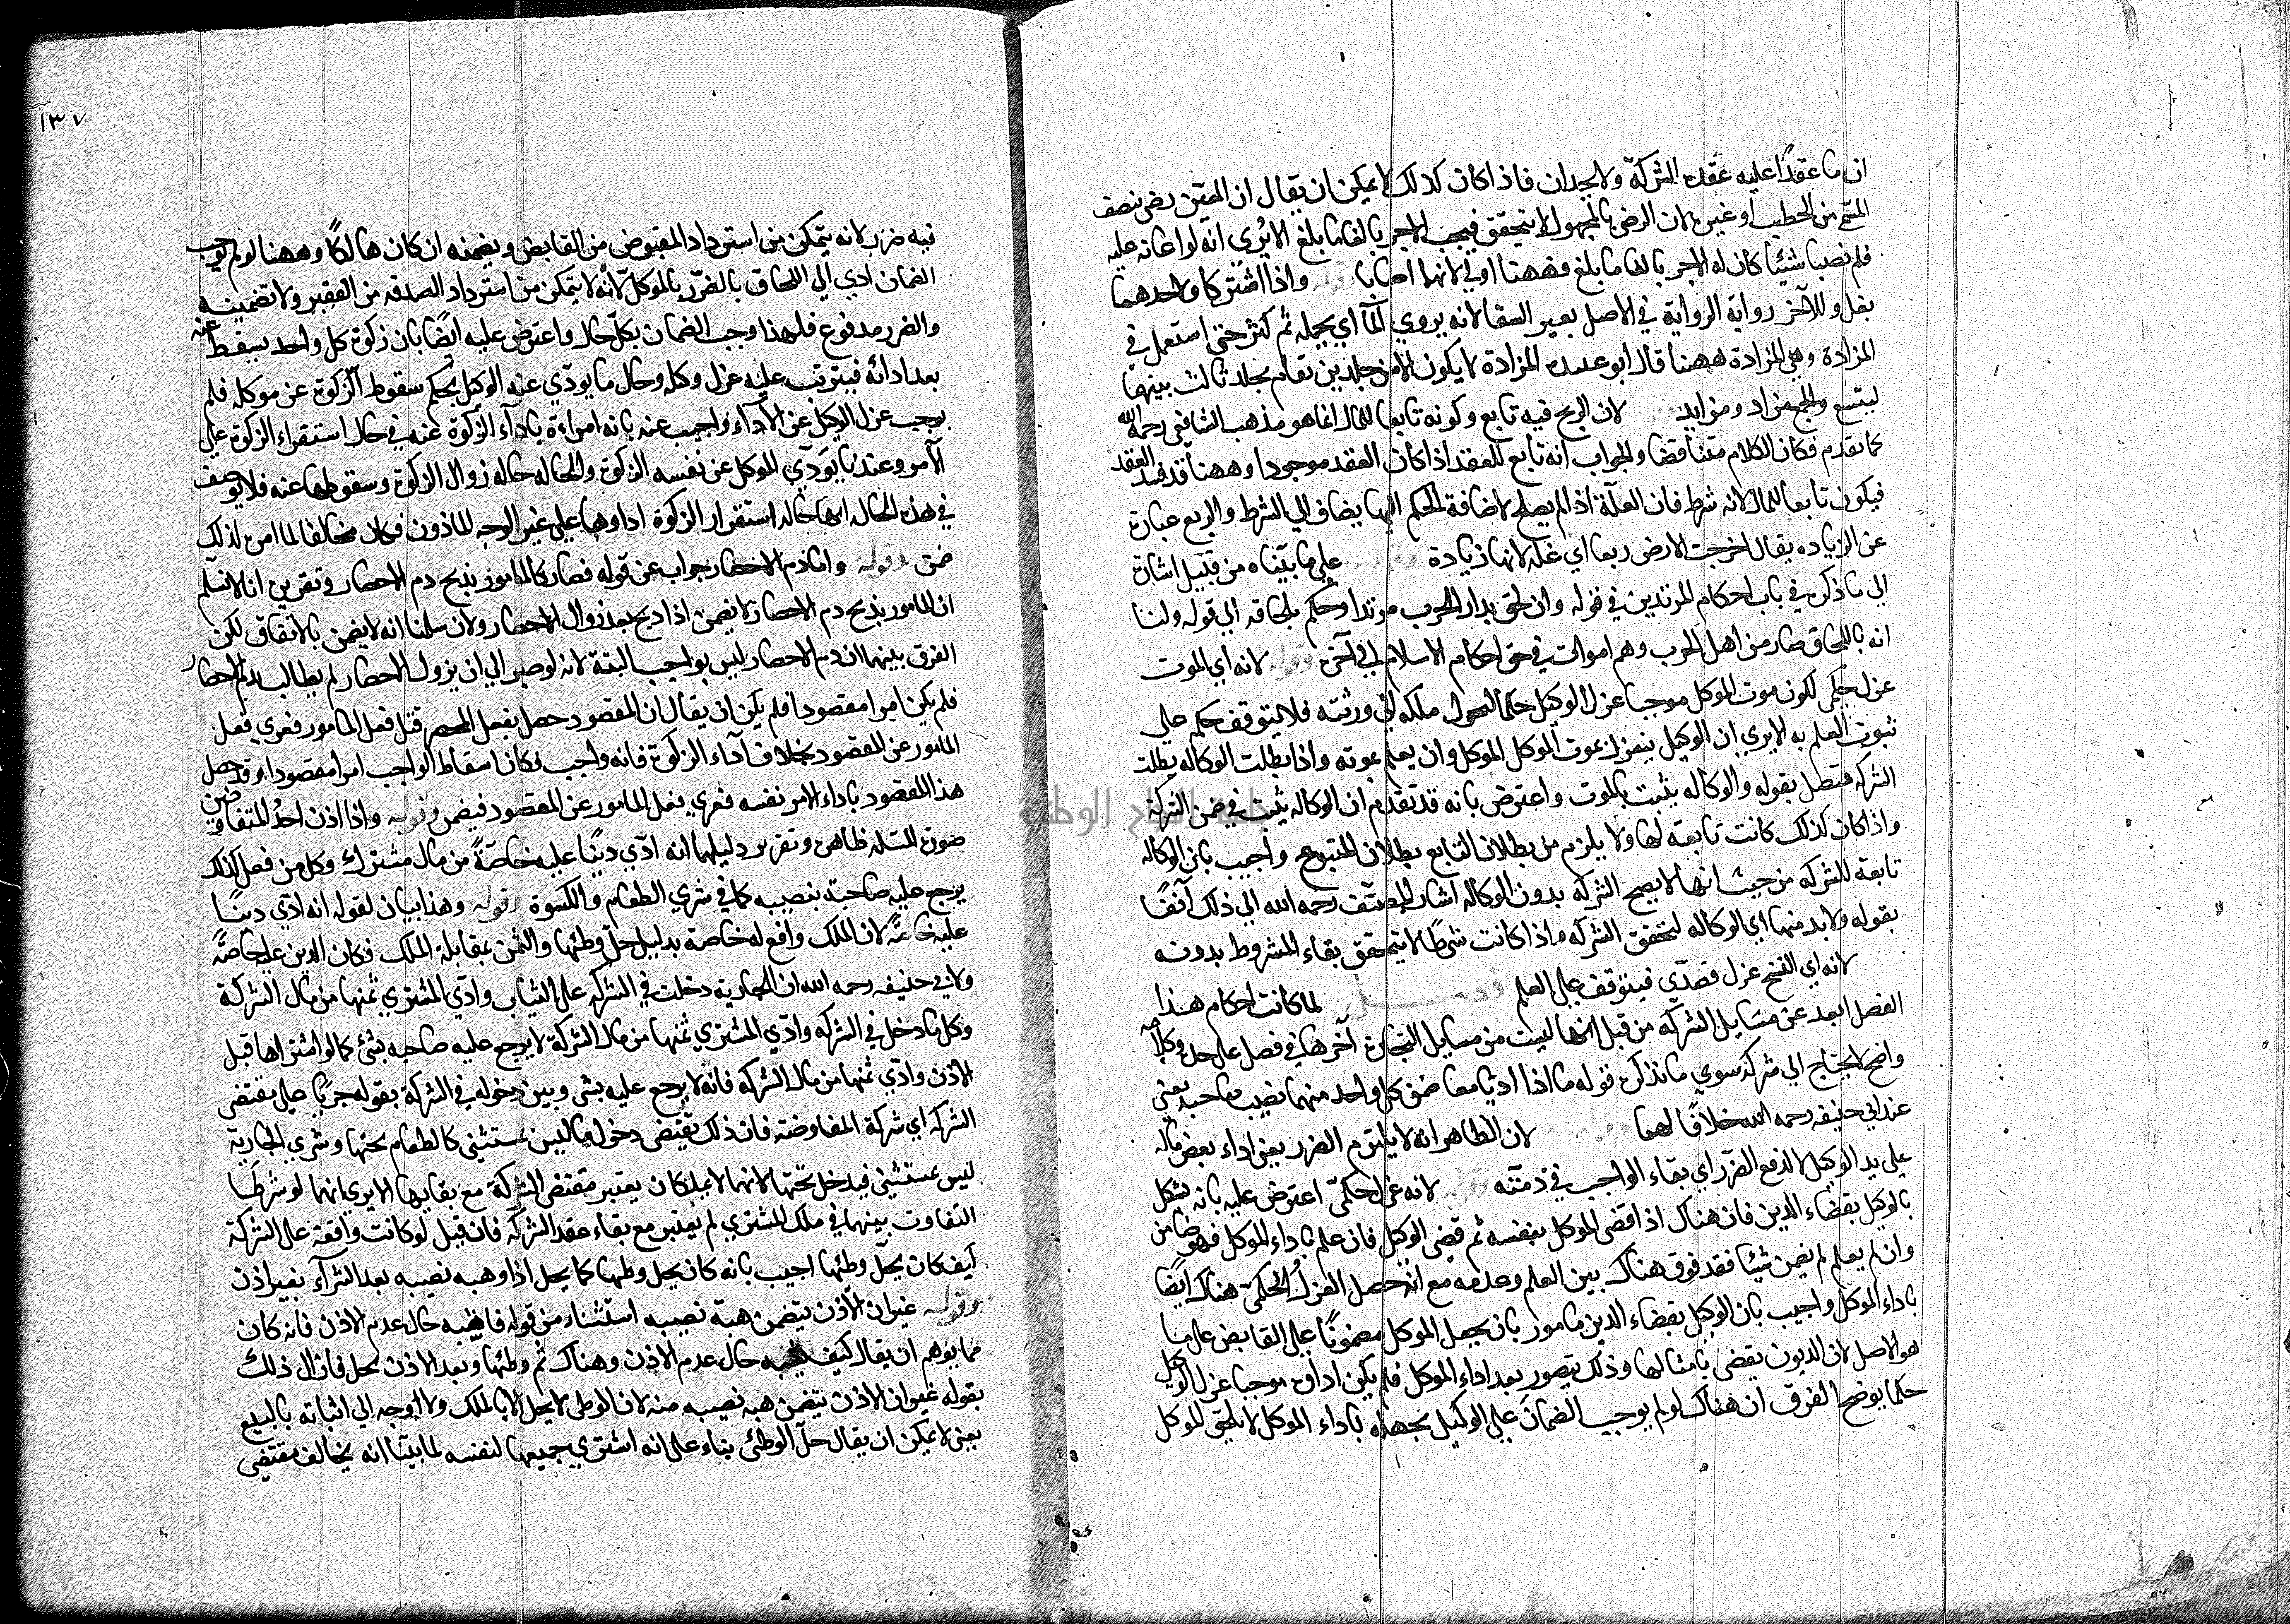 ان ما عقدا عليه عقد الشركة ولا يجدان فاذا كان كذلك لا يمكن ان يقال ان المعين رضي بنصف
المسمى من الحطب او غيره لان الرضى بالمجهول لا يتحقق فيجب الاجر بالغا ما بلغ الا يرى انه لو اعانه عليه
فلم نصيبا شيئا كان له الاجر بالغا ما بلغ فههنا اولى لانهما اصابا قوله واذا اشتركا ولاحدهما
بغل وللآخر رواية الرواية في الاصل بعير السقا لانه يروي الماء اي يحمله ثم كثر حتى استعمل في
المزادة وهي المزادة ههنا قال ابو عبيده المزادة لا يكون الا من جلدين تقام بجلد ثالث بينهما
ليتسع والجمع مزاد ومزايد لان الربح فيه تابع وكونه تابعا للمال انما هو مذهب الشافعي رحمه الله
كما تقدم فكان الكلام متناقضا والجواب انه تابع للعقد اذا كان العقد موجودا وههنا قد فسد العقد
فيكون تابعا للمال لانه شرط فان العلة اذا لم يصلح لاضافة الحكم اليها يضاف الى الشرط والريع عبارة
عن الزيادة يقال اخرجت الارض ريعا اي غلة لانها زيادة وقوله على ما بيناه من قبل اشارة
الى ما ذكره في باب احكام المرتدين في قوله وان لحق بدار الحرب مرتدا وحكم بلحاقه الى قوله ولنا
انه باللحاق صار من اهل الحرب وهم اموات في حق احكام الاسلام الى آخره وقوله لانه اي الموت
عزل حكمي لكون موت الموكل موجبا عزل الوكيل حكما لتحول ملكه الى ورثته فلا يتوقف حكمه على
ثبوت العلم به الا يرى ان الوكيل ينعزل بموت الموكل وان لم يعلم بموته واذا بطلت الوكالة بطلت
الشركة متصل بقوله والوكالة يثبت بالموت واعترض بانه قد تقدم ان الوكالة يثبت في ضمن الشركة
واذا كان كذلك كانت تابعة لها ولا يلزم من بطلان التابع بطلان المتبوع واجيب بان الوكالة
تابعة للشركة من حيث انها لا يصح الشركة بدون الوكالة اشار المصنف رحمه الله الى ذلك آنفا
بقوله ولا بد منها اي الوكالة لتحقق الشركة واذا كانت شرطا لا يتحقق بقاء المشروط بدونه
لانه اي الفسخ عزل قصدي فيتوقف على العلم فصل لما كانت احكام هذا
الفصل ابعد عن مسايل الشركة من قبل انها ليست من مسايل التجارة آخرها في فصل على حدة وكلامه
واضح لا يحتاج الى شركة سوى ما نذكره قوله ما اذا اديا معا ضمن كل واحد منهما نصيب صاحبه يعني
عند ابي حنيفه رحمه الله خلافا لهما وقوله لان الظاهر انه لا يلتزم الضرر يعني اداء بعض ماله
على يد الوكيل الا لدفع الضرر اي بقاء الواجب في ذمته وقوله لانه عزل حكمي اعترض عليه بانه يشكل
بالوكيل بقضاء الدين فان هناك اذا قضى الموكل بنفسه ثم قضى الوكيل فان علم باداء الموكل فهو ضامن
وان لم يعلم لم يضمن شيئا فقد فرق هناك بين العلم وعدمه مع انه حصل العزل الحكمي هناك ايضا
باداء الموكل واجيب بان الوكيل بقضاء الدين مامور بان يجعل الموكل مضمونا على القابض على ما
هو الاصل لان الديون يقضى بامثالها وذلك يتصور بعد اداء الموكل فلم يكن اداؤه موجبا عزل الوكيل
حكما يوضح الفرق ان هناك لو لم يوجب الضمان على الوكيل بجهله باداء الموكل لا يلحق الموكل
١٣٧
فيه ضرر لانه يتمكن من استرداد المقبوض من القابض ويضمنه ان كان هالكا وههنا لو لم يوجب
الضمان ادى الى الحاق بالضرر بالموكل لانه لا يتمكن من استرداد الصدقه من الفقير ولا تضمينه
والضرر مدفوع فلهذا وجب الضمان بكل حال واعترض عليه ايضا بان زكوة كل واحد يسقط عنه
بعد ادائه فيترتب عليه عزل وكله وحال ما يودي عنه الوكيل بحكم سقوط الزكوة عن موكله فلم
يوجب عزل الوكيل عن الاداء واجيب عنه بانه امراءه باداء الزكوة عنه في حال استقراء الزكوة على
الآمر وعند ما يؤدي الموكل عن نفسه الزكوة والحاله حاله زوال الزكوة وسقوطها عنه فلا يوصف
في هذه الحاله انها حاله استقرار الزكوة اداوها على غير الوجه الماذون فكان مخالفا لما امر لذلك
ضمن وقوله واما دم الاحصار جواب عن قوله فصار كالمامور بذبح دم الاحصار وتقريره انا لا نسلم
ان المامور بذبح دم الاحصار لا يضمن اذا ذبح بعد زوال الاحصار ولان سلمنا انه لا يضمن بالاتفاق لكن
الفرق بينهما ان دم الاحصار ليس بواجب البتة لانه لو صبر الى ان يزول الاحصار لم يطالب بدم الاحصار
فلم يكن امرا مقصودا فلم يكن ان يقال ان المقصود حصل بفعل المحصر قبل فعل المامور فعري فعل
المامور عن المقصود بخلاف آداء الزكوة فانه واجب فكان اسقاط الواجب امرا مقصودا وقد حصل
هذا المقصود باداء الامر نفسه فعري فعل المامور عن المقصود فيضمن وقوله واذا اذن احد المتفاوضين
صورة المسئلة ظاهرة وتقرير دليلهما انه ادى دينا عليه خاصة من مال مشترك وكل من فعل كذلك
يرجع عليه صاحبه بنصيبه كما في شرى الطعام والكسوة وقوله وهذا بيان لقوله انه ادى دينا
عليه خاصة لان الملك واقع له خاصة بدليل حل وطئها والثمن بمقابلة الملك فكان الدين عليه خاصة
ولابي حنيفه رحمه الله ان الجارية دخلت في الشركة على الثبات وادى المشتري ثمنها من مال الشركة
وكل ما دخل في الشركه وادى المشتري ثمنها من مال الشركة لا يرجع عليه صاحبه بشئ كما لو اشتراها قبل
الاذن وادى ثمنها من مال الشركه فانه لا يرجع عليه بشى وبين دخوله في الشركة بقوله جريا على مقتضى
الشركه اي شركة المفاوضه فان ذلك يقتضى دخول ما ليس بمستثنى كالطعام تحتها وشرى الجارية
ليس بمستثنى فيدخل تحتها لانهما لا يملكان يعتبر مقتضى الشركة مع بقايها الا يرى انهما لو شرطا
التفاوت بينهما في ملك المشترى لم يعتبر مع بقاء عقد الشركه فان قيل لو كانت واقعة على الشركة
كيف كان يحل وطئها اجيب بانه كان يحل وطئها كما يحل اذا وهبه نصيبه بعد الشرآء بغير اذن
وقوله غير ان الاذن يتضمن هبة نصيبه استثناء من قوله فاشبه حال عدم الاذن فانه كان
مما يوهم ان يقال كيف يشبه حال عدم الاذن وهناك ثم وطئها وبعد الاذن يحل فازال ذلك
بقوله غير ان الاذن يتضمن هبه نصيبه منه لان الوطى لا يحل الا بالملك ولا وجه الى اثباته بالبيع
يعني لا يمكن ان يقال حل الوطئ بناء على انه اشترى جميعها لنفسه لما بينا انه يخالف مقتضى